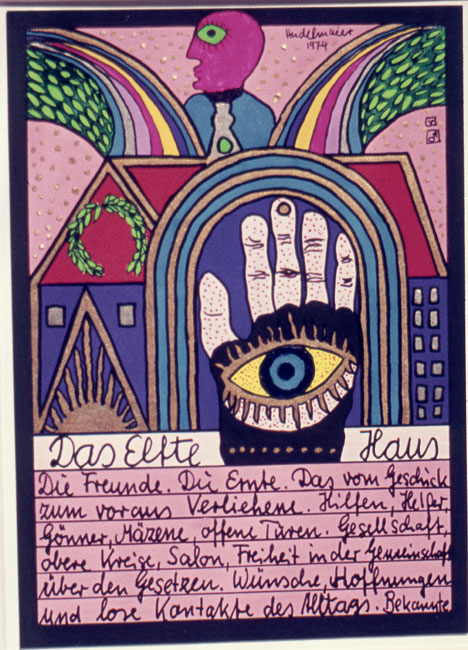 Hudelmaier
1974
Das Elfte Haus
Die Freunde. Die Ernte. Das vom Geschick
zum voraus Verliehene. Hilfen, Helfer,
Gönner, Mäzene, offene Türen. Gesellschaft,
obere Kreise, Salon, Freiheit in der Gemeinschaft
über den Gesetzen. Wünsche, Hoffnungen
und lose Kontakte des Alltags. Bekannte